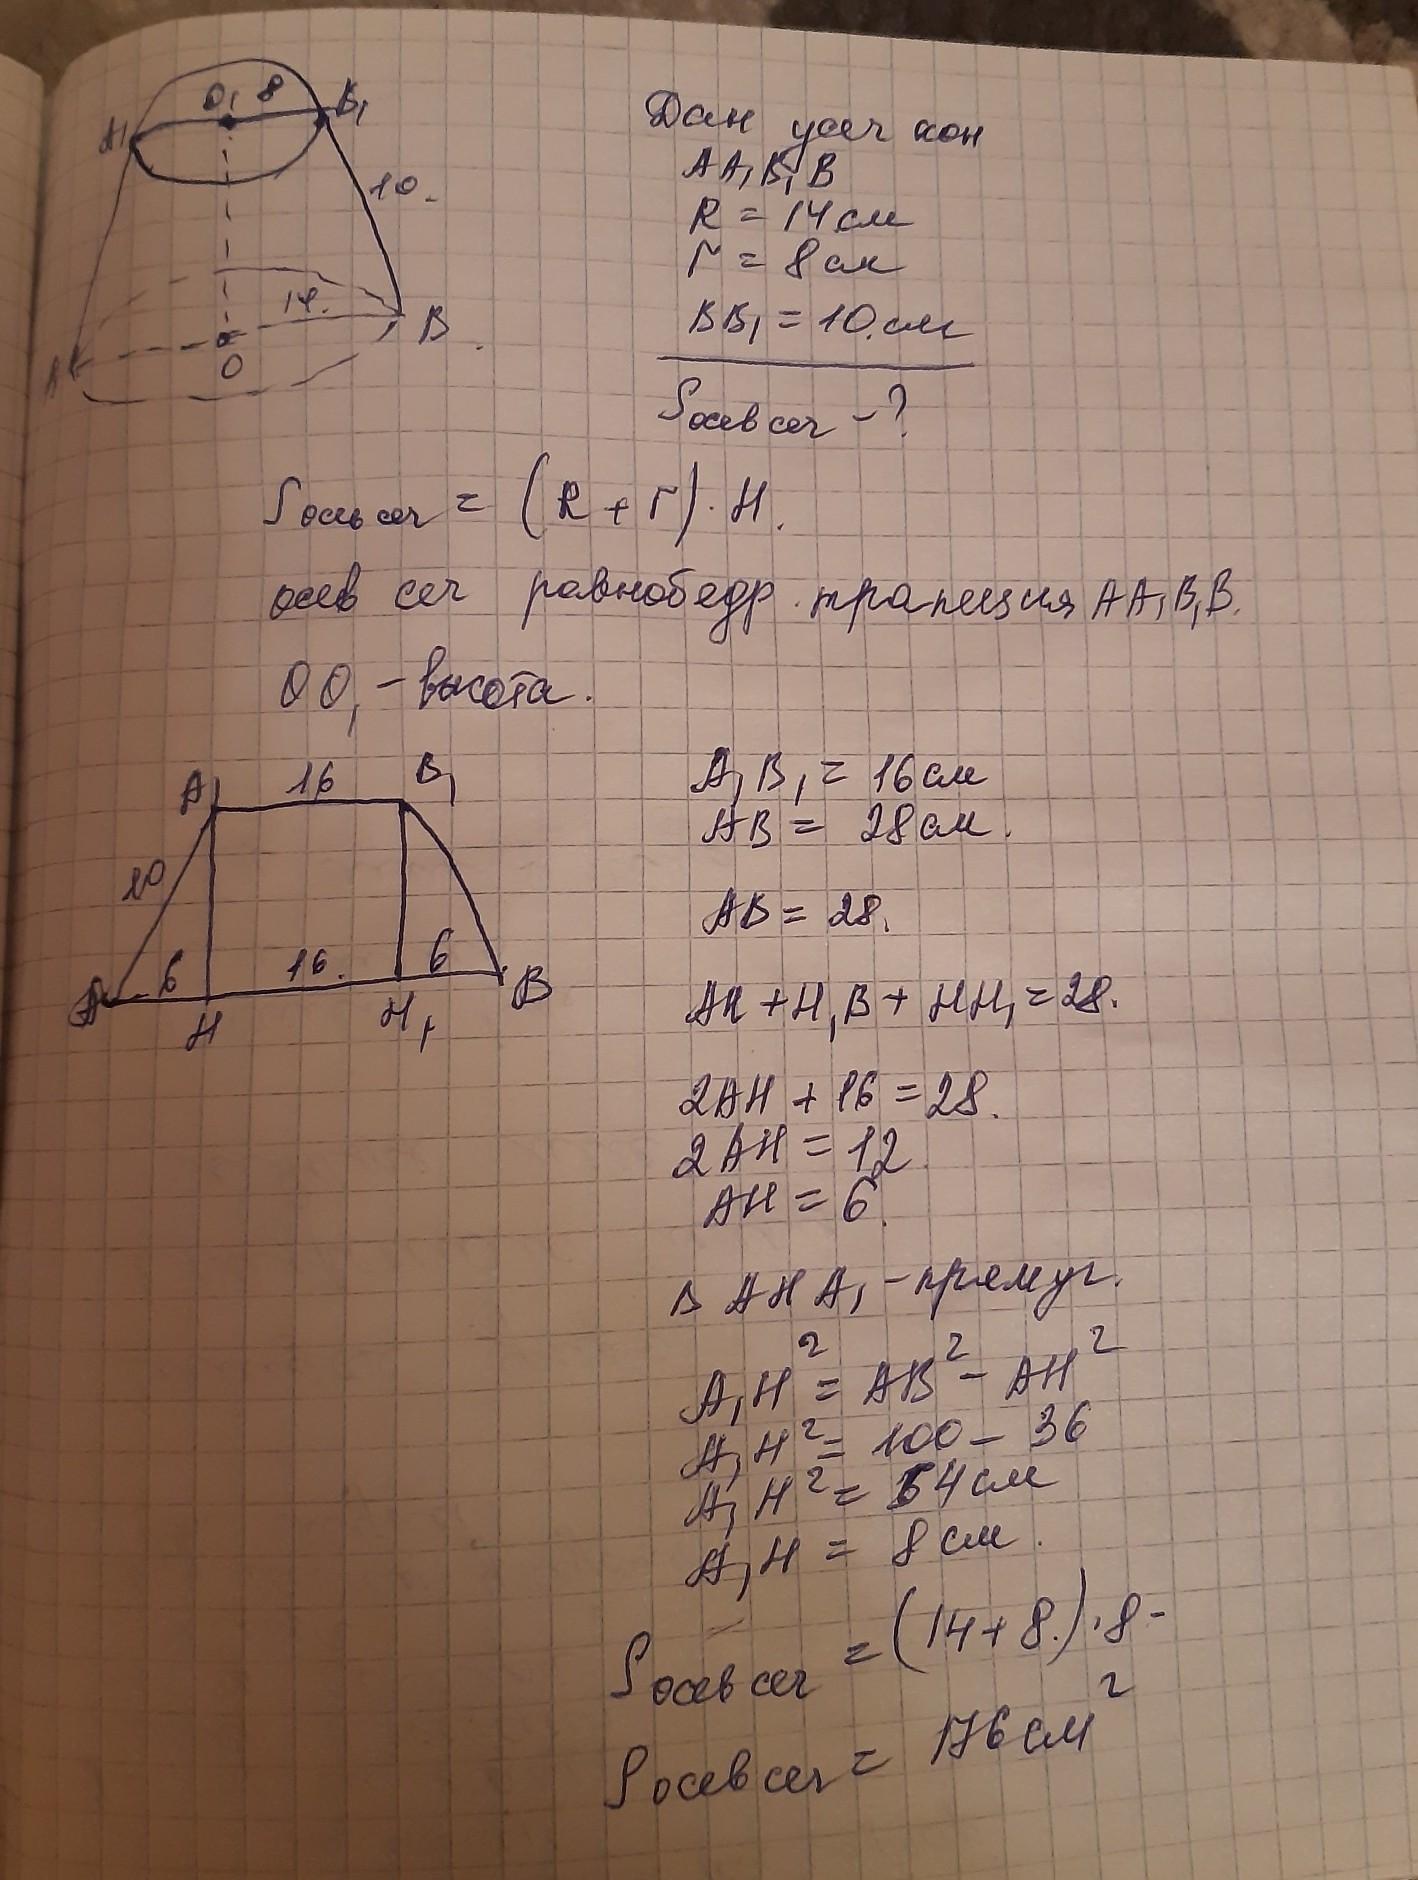 O₁ 8 B₁
A₁
10.
14.
A O B.
Дан усеч кон
AA₁B₁B
R = 14 см
r = 8 см
BB₁ = 10 см
Sосев сеч - ?
Sосев сеч = (R + r) · H.
осев сеч равнобедр. трапеция AA₁B₁B.
OO₁ - высота.
A₁ 16 B₁
10
6 16. 6
A H H₁ B
A₁B₁ = 16 см
AB = 28 см.
AB = 28.
AH + H₁B + HH₁ = 28.
2AH + 16 = 28.
2AH = 12
AH = 6.
▵ AHA₁ - прямуг.
A₁H² = AB² - AH²
A₁H² = 100 - 36
A₁H² = 64 см
A₁H = 8 см.
Sосев сеч = (14 + 8.) · 8 -
Sосев сеч = 176 см²